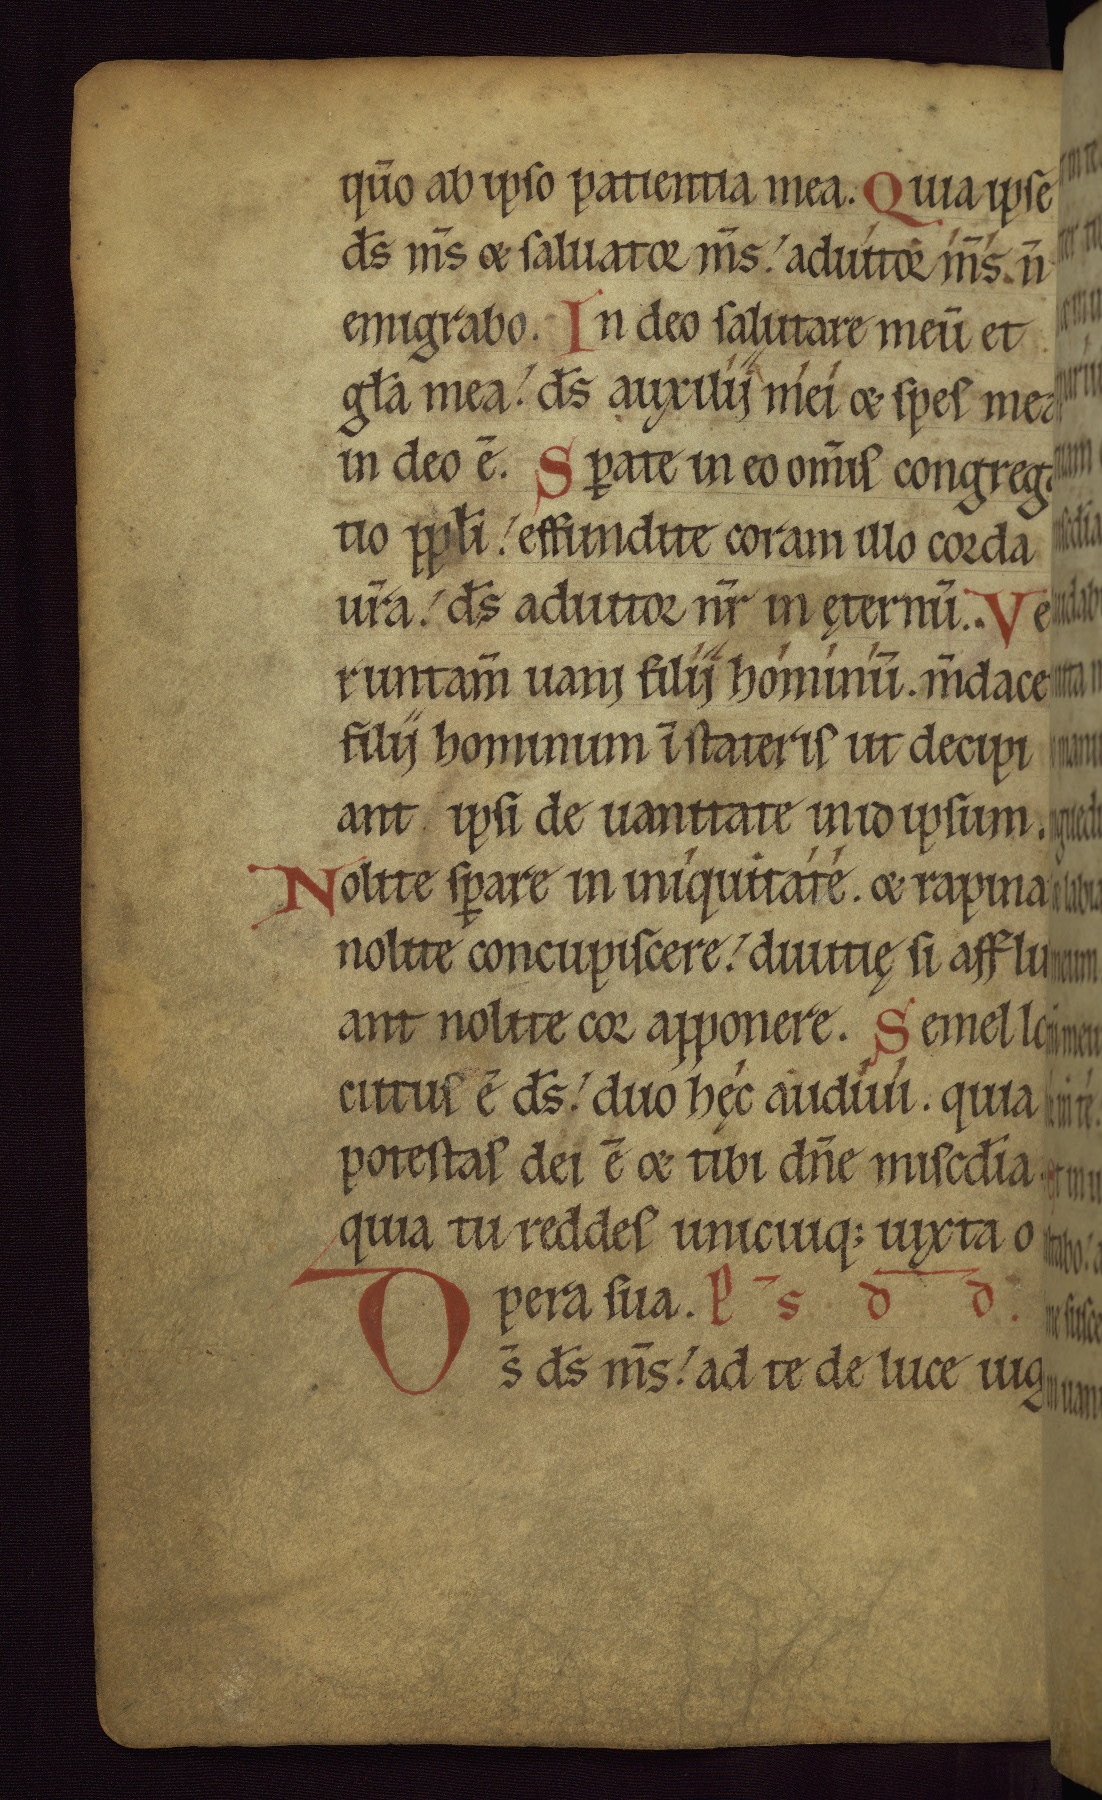 qm̄o ab ipso patientia mea. Quia ipse
d̄s m̄s & saluator m̄s! adiutor m̄s. n̄
emigrabo. In deo salutare meū et
gl̄a mea! d̄s auxilij mei & spes mea
in deo ē. Sꝑate in eo om̄is congrega
tio ppl̄i! effundite coram illo corda
ur̄a! d̄s adiutor nr̄ in ęternū. Ve
runtam̄ uani filij hominū. m̄dace
filij hominum ī stateris ut decipi
ant ipsi de uanitate in id ipsum.
Nolite sꝑare in iniquitate. & rapina
nolite concupiscere! diuitię si afflu
ant nolite cor apponere. Semel lo
cutus ē d̄s! duo hęc audiui. quia
potestas dei ē & tibi dn̄e miscd̄ia.
quia tu reddes unicuiq; iuxta o
pera sua. P̄s d d.
D̄s d̄s m̄s! ad te de luce uig